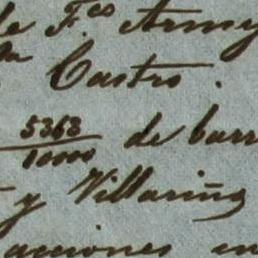 de F.cos Army
Castro.
5363/10000 de barr
y Villarino
acciones en